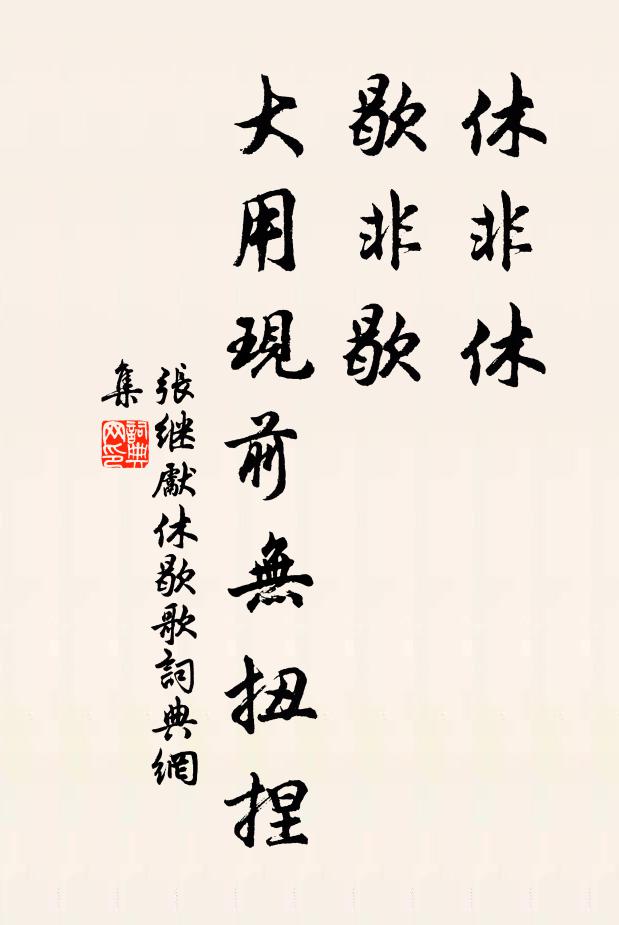 休非休
歇非歇
大用現前無扭捏
張继獻休歇歌詞典網
集
詞典
网印